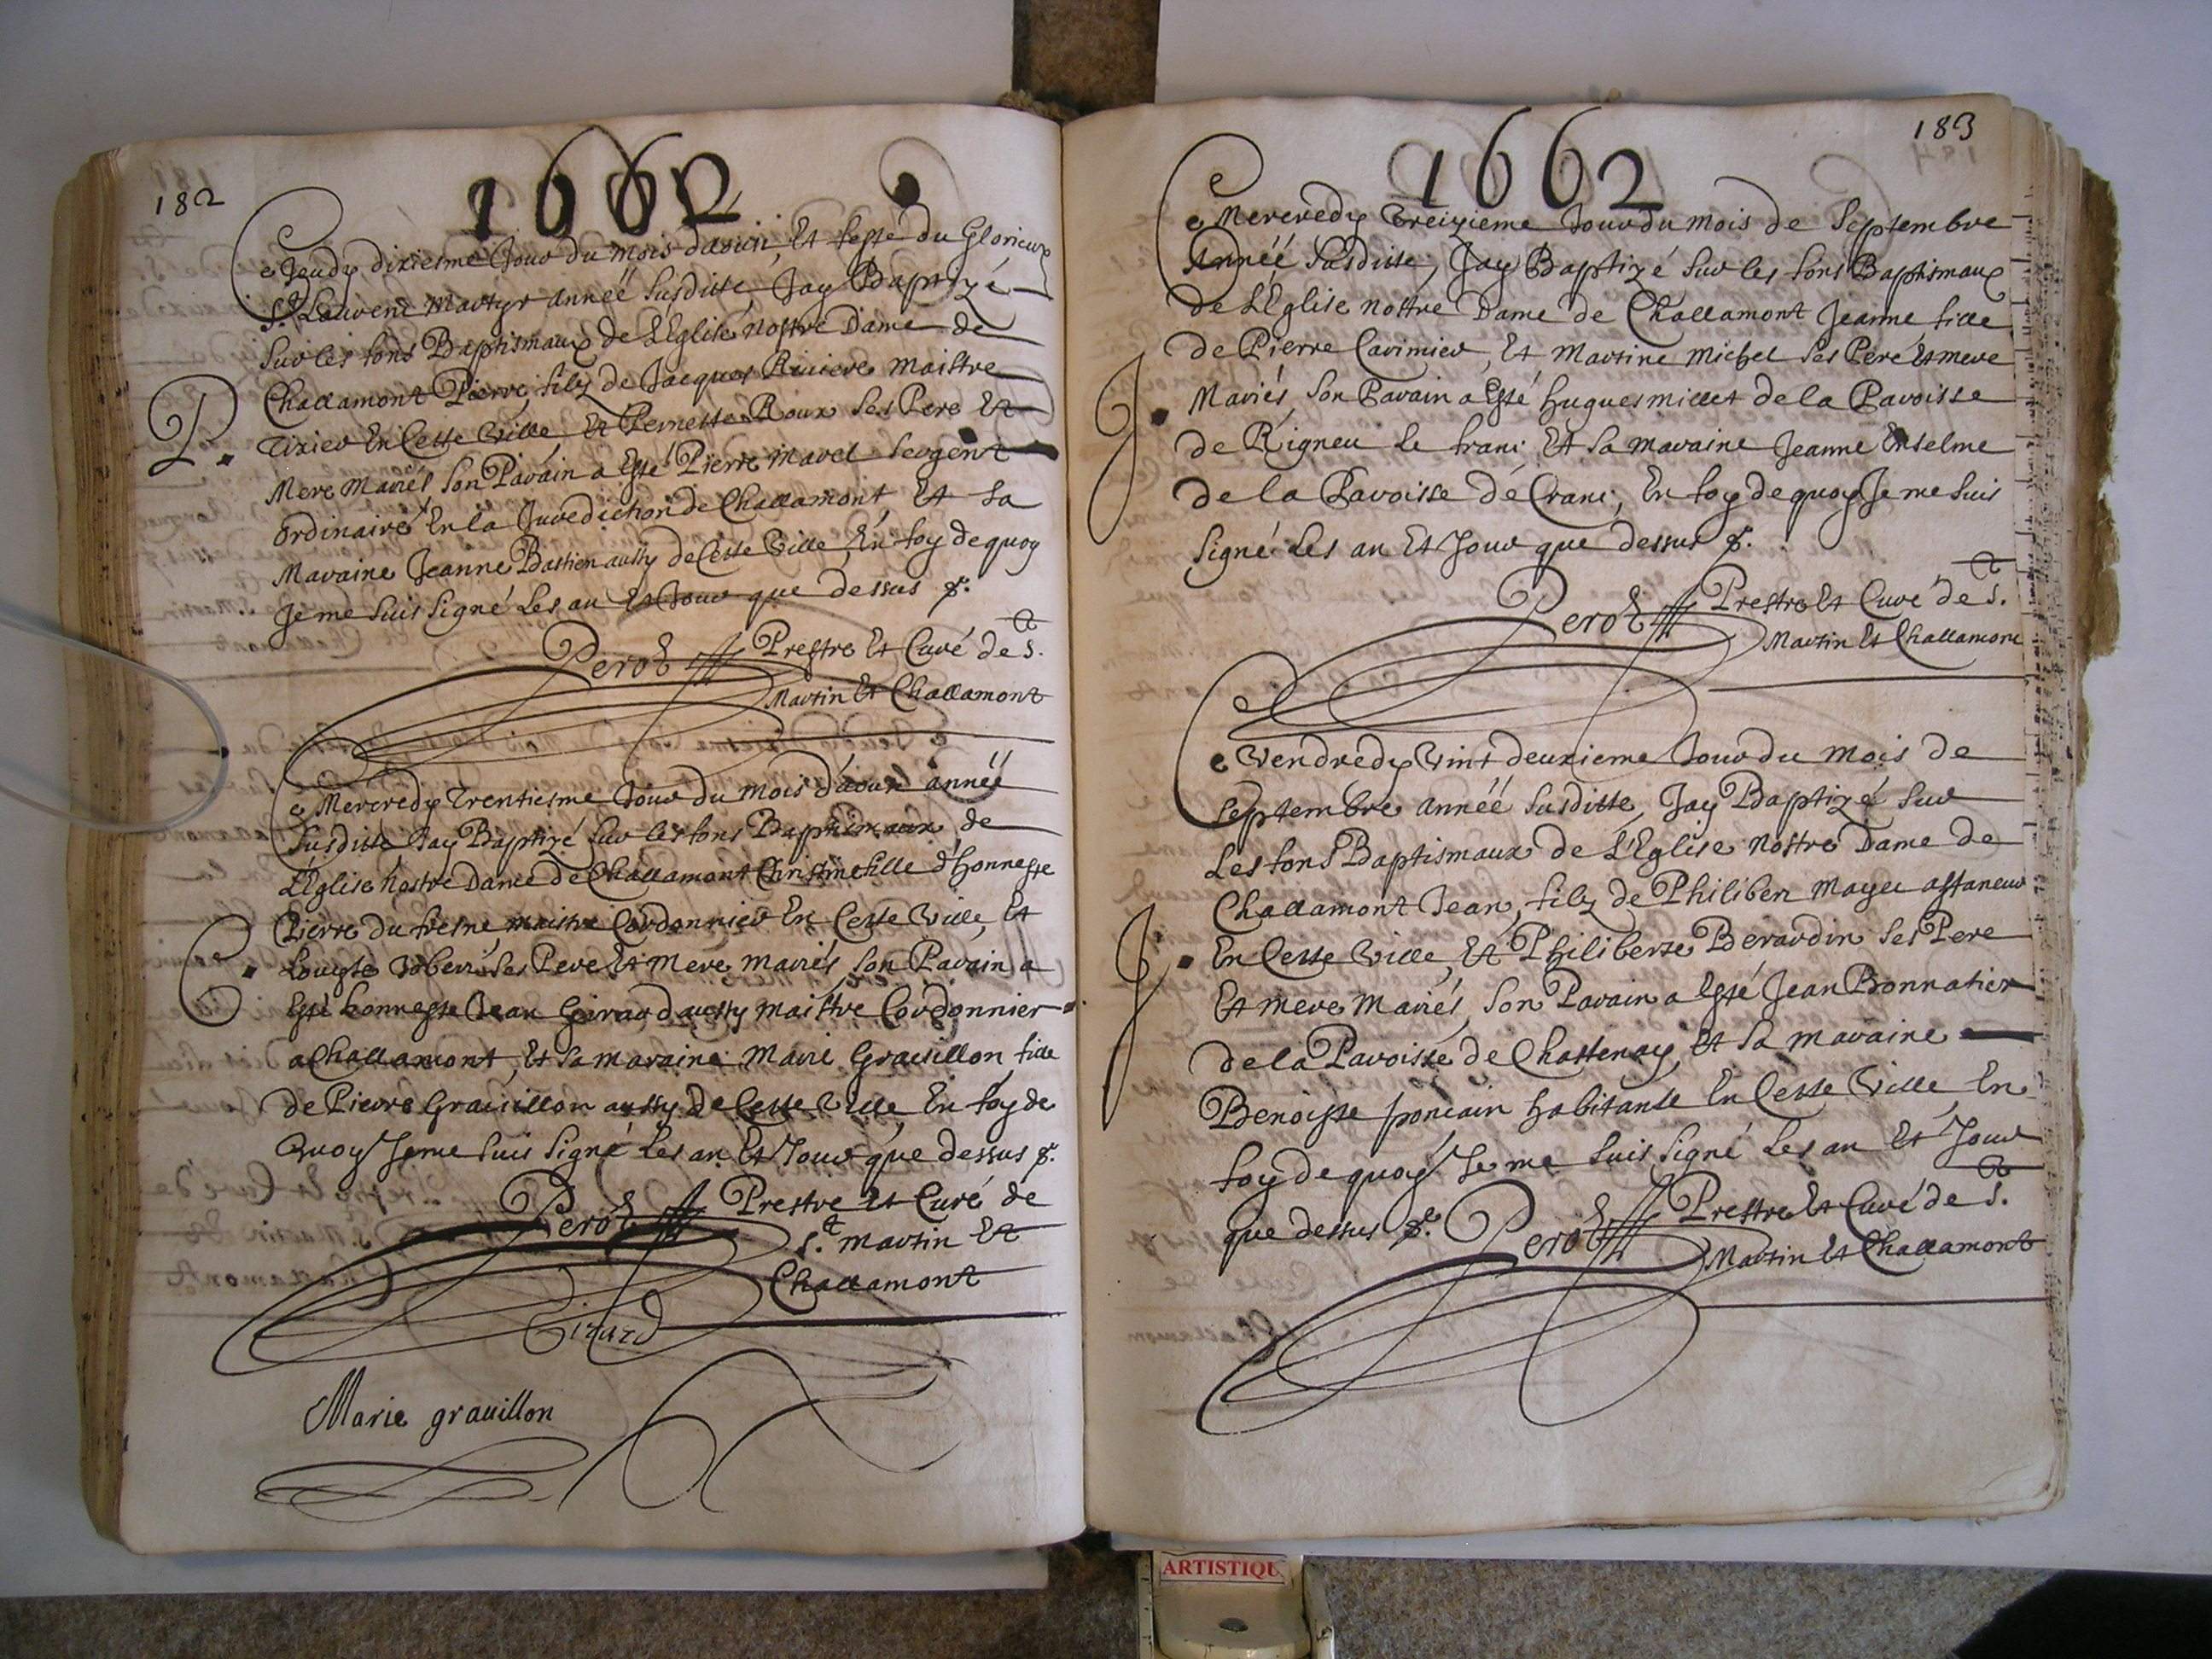 182
1662
Ce Jeudy dixiesme Jour du mois daoust, Et feste du Glorieux
St. Laurent Martyr année susditte, Jay Baptizé
sur les fons Baptismaux de L'Eglise Nostre Dame de
Challamont Pierre, filz de Jacques Riviere maistre
Tixier En Cette Ville, Et Pernette Roux ses Pere Et
P.
Mere Mariés son Parain a Esté Pierre Marel sergent
ordinaire En la Jurediction de Challamont, Et sa
Maraine Jeanne Bastien aussy de Cette Ville, En foy de quoy
Je me suis signé Les an Et Jour que dessus &.
Perot Prestre Et Curé de St.
Martin Et Challamont
Ce Mercredy Trentiesme Jour du mois d'aoust année
susditte Jay Baptizé sur les fons Baptismaux de
L'Eglise Nostre Dame de Challamont Christine fille d'honneste
Pierre du fresne maistre Cordonnier En Cette Ville, Et
C.
ses Pere Et Mere mariés, son Parain a
Esté honneste Jean Girard aussy maistre Cordonnier
a Challamont, Et sa maraine Marie Gravillon, fille
de Pierre Gravillon aussy de Cette Ville, En foy de
Quoy Je me suis signé Les an Et Jour que dessus &.
Perot Prestre Et Curé de
St. Martin Et
Challamont
Girard
Marie grauillon
183
1662
Ce Mercredy Treizieme Jour du mois de Septembre
Année susditte, Jay Baptizé sur les fons Baptismaux
de L'Eglise Nostre Dame de Challamont Jeanne fille
de Pierre Carimier, Et Martine Michel ses Pere Et mere
Mariés, son Parain a Esté hugues millet de la Paroisse
J.
de Rigneu le franc Et sa maraine Jeanne Enselme
de la Paroisse de Crans, En foy de quoy Je me suis
signé Les an Et Jour que dessus &.
Perot Prestre Et Curé de St.
Martin Et Challamont
Ce Vendredy Vint deuxieme Jour du mois de
septembre année susditte, Jay Baptizé sur
Les fons Baptismaux de L'Eglise Nostre Dame de
Challamont Jean, filz de Philiber Mayer affaneur
J.
En Cette Ville, Et Philiberte Berardin ses Pere
Et mere Mariés, son Parain a Esté Jean Bonnatier
de la Paroisse de Chastenay, Et sa maraine
Benoiste ponçain habitante En Cette Ville, En
foy de quoy Je me suis signé Les an Et Jour
que dessus &. Perot Prestre Et Curé de St.
Martin Et Challamont
ARTISTIQU